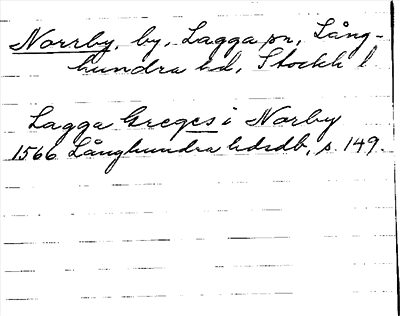 Norrby, by, Lagga sn, Lång-
hundra hd, Stockh l
Lagga Greges i Norby
1566 Långhundra hdsdb, s. 149.